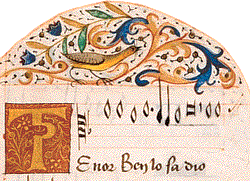 Tenor Ben lo sa dio